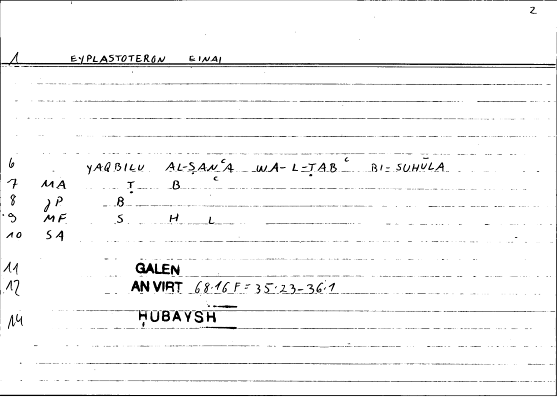 2
1 EYPLASTOTERON EINAI
6 YAQBILU AL-ṢANᶜA WA-L-ṬABᶜ BI-SUHŪLA
7 MA Ṭ B ᶜ
8 JP B
9 MF S H L
10 SA
11 GALEN
12 AN VIRT 68.16 F = 35.23-36.1
14 ḤUBAYSH